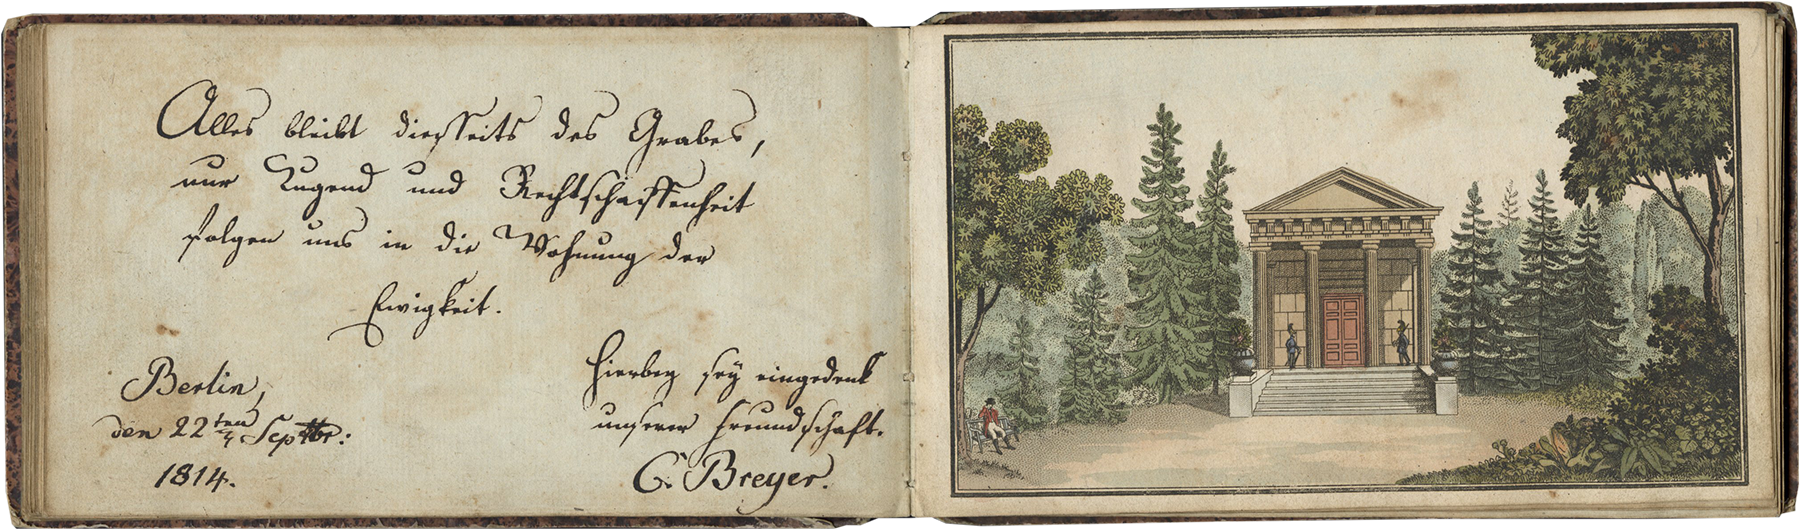 Alles bleibt dießeits des Grabes,
nur Tugend und Rechtschaffenheit
folgen uns in die Wohnung der
Ewigkeit.
Berlin,
den 22ten Septbr:
1814.
Hierbey sey eingedenk
unserer Freundschaft.
C. Breyer.